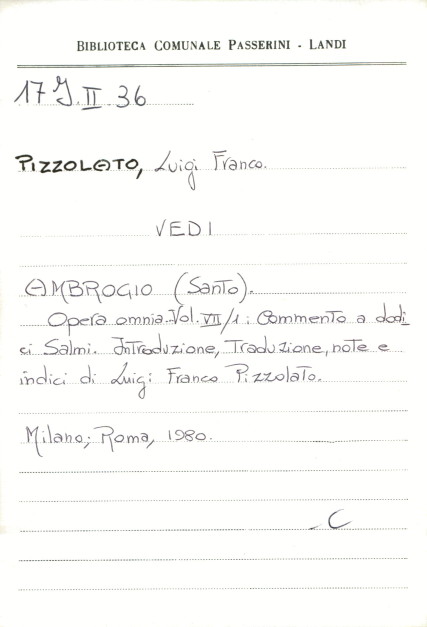 BIBLIOTECA COMUNALE PASSERINI - LANDI
17 J. II. 36
PIZZOLATO, Luigi Franco.
VEDI
AMBROGIO (Santo).
Opera omnia. Vol. VII/1: Commento a dodi
ci Salmi. Introduzione, Traduzione, note e
indici di Luigi Franco Pizzolato.
Milano; Roma, 1980.
C